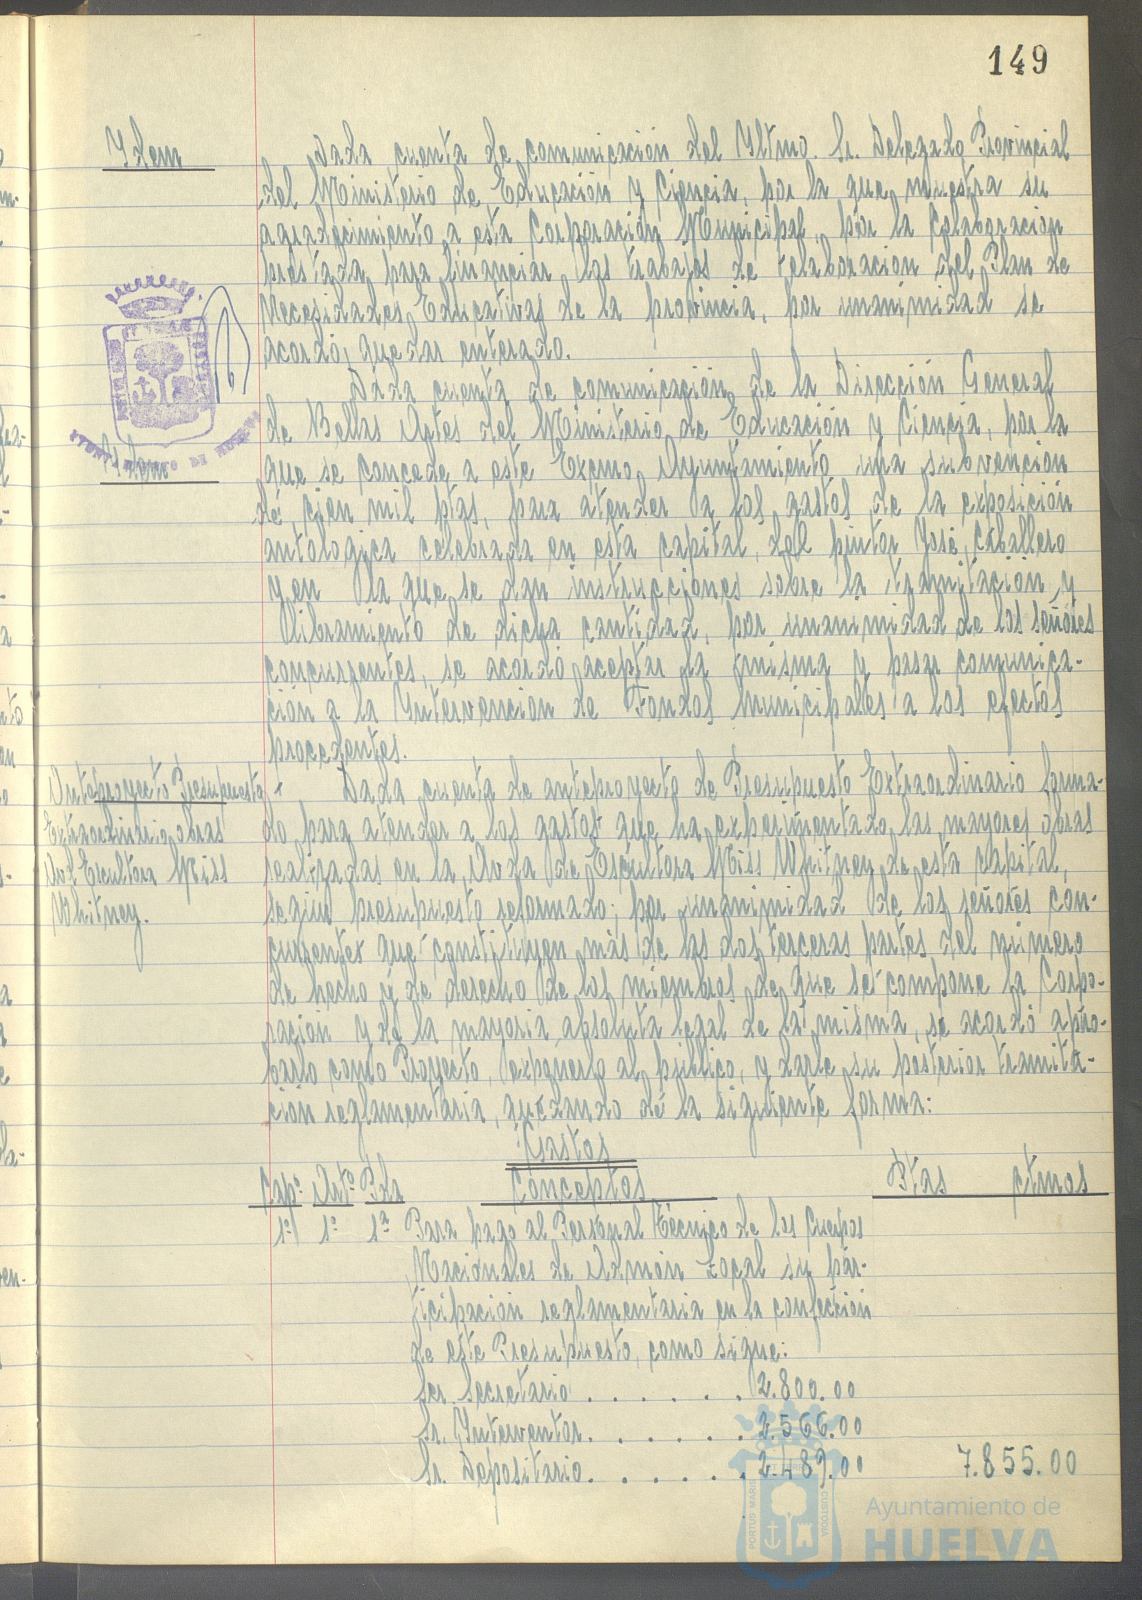 149
Idem
Dada cuenta de comunicación del Iltmo. Sr. Delegado Provincial
del Ministerio de Educación y Ciencia, por la que muestra su
agradecimiento a esta Corporación Municipal, por la Colaboración
prestada para financiar los trabajos de elaboración del Plan de
Necesidades Educativas de la provincia, por unanimidad se
acordó, quedar enterado.
Idem
Dada cuenta de comunicación de la Dirección General
de Bellas Artes del Ministerio de Educación y Ciencia, por la
que se concede a este Excmo. Ayuntamiento una subvención
de cien mil ptas, para atender a los gastos de la exposición
antologica celebrada en esta capital, del pintor José Caballero
y en la que se dan instrucciones sobre la tramitación y
libramiento de dicha cantidad, por unanimidad de los señores
concurrentes, se acordó aceptar la misma y pasar comunica-
ción a la Intervención de Fondos Municipales a los efectos
procedentes.
Anteproyecto Presupuesto
Extraordinario obras
Avd. Escultora Miss
Whitney.
Dada cuenta de anteproyecto de Presupuesto Extraordinario forma-
do para atender a los gastos que ha experimentado las mayores obras
realizadas en la Avda de Escultora Miss Whitney de esta capital,
según presupuesto reformado; por unanimidad de los señores con-
currentes que constituyen más de las dos terceras partes del número
de hecho y de derecho de los miembros de que se compone la Corpo-
ración y de la mayoria absoluta legal de la misma, se acordó apro-
barlo como Proyecto, exponerlo al público, y darle su posterior tramita-
ción reglamentaria, quedando de la siguiente forma:
Gastos
Capº Artº Pda Conceptos Ptas ctmos
1º 1º 1ª Para pago al Personal Técnico de los Cuerpos
Nacionales de Admón Local su par-
ticipación reglamentaria en la confección
de este Presupuesto, como sigue:
Sr. Secretario . . . . . . 2.800.00
Sr. Interventor . . . . . . 2.566.00
Sr. Depositario . . . . . . 2.489.00 7.855.00
PORTUS MARIS
CUSTODIA
Ayuntamiento de
HUELVA